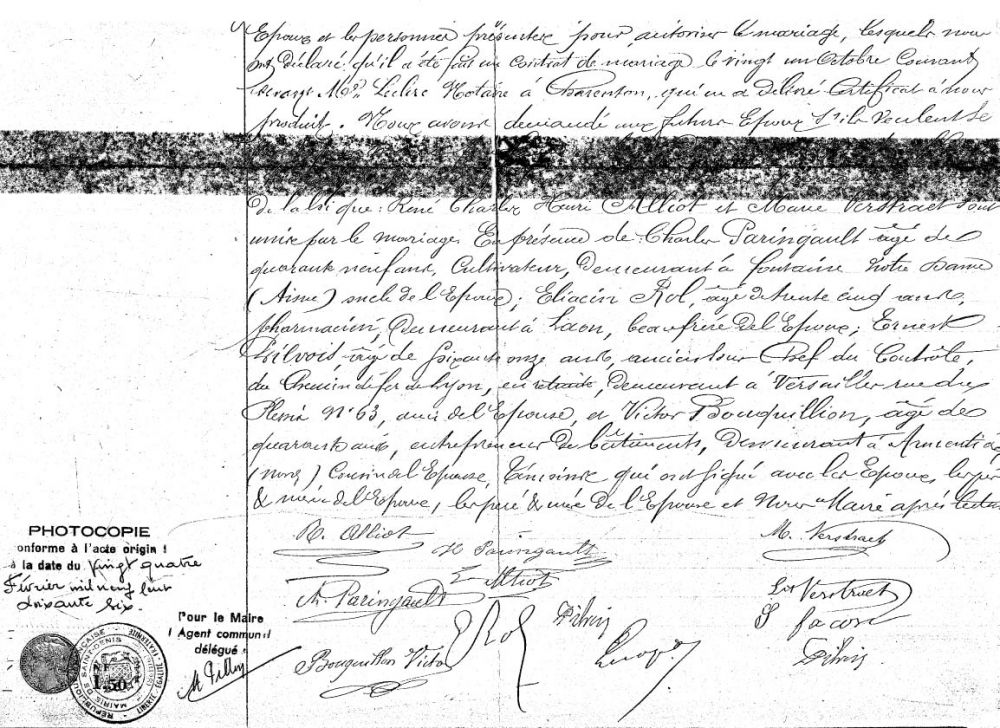 Epoux et les personnes présentes pour autoriser le mariage, lesquels nous
ont déclaré qu'il a été fait un contrat de mariage le vingt un Octobre Courant
devant Me Leclerc Notaire à Charenton, qui en a délivré Certificat à nous
produit. Nous avons demandé aux futurs Epoux s'ils veulent se
de la loi que: René Charles Henri Alliot et Marie Verstraet sont
unis par le mariage. En présence de: Charles Paringault âgé de
quarante neuf ans, Cultivateur, demeurant à fontaine Notre Dame
(Aisne) oncle de l'Epoux; Eliacin Rol, âgé de trente cinq ans,
pharmacien, demeurant à Laon, beau frère de l'Epoux; Ernest
âgé de soixante onze ans, ancien Chef du Contrôle,
du Chemin de fer de Lyon, en retraite, demeurant à Versailles rue du
Plessis N° 63, ami de l'Epouse, et Victor Bouquillion, âgé de
quarante ans, entrepreneur de bâtiments, demeurant à Armentiè
(nord), Cousin de l'Epouse, témoins qui ont signé avec les Epoux, les père
& mère de l'Epoux, les père & mère de l'Epouse et Nous Maire après lecture
R. Alliot
M. Verstraet
H Paringault
Alliot
Ch. Paringault
Verstraet
Rol
facon
Bouquillon Victor
PHOTOCOPIE
onforme à l'acte origin l
à la date du Vingt quatre
Février mil neuf cent
soixante six.
Pour le Maire
l Agent communal
délégué
RÉPUBLIQUE FRANÇAISE
MAIRIE DE SAINT-DENIS
LIBERTÉ ÉGALITÉ FRATERNITÉ
1.50